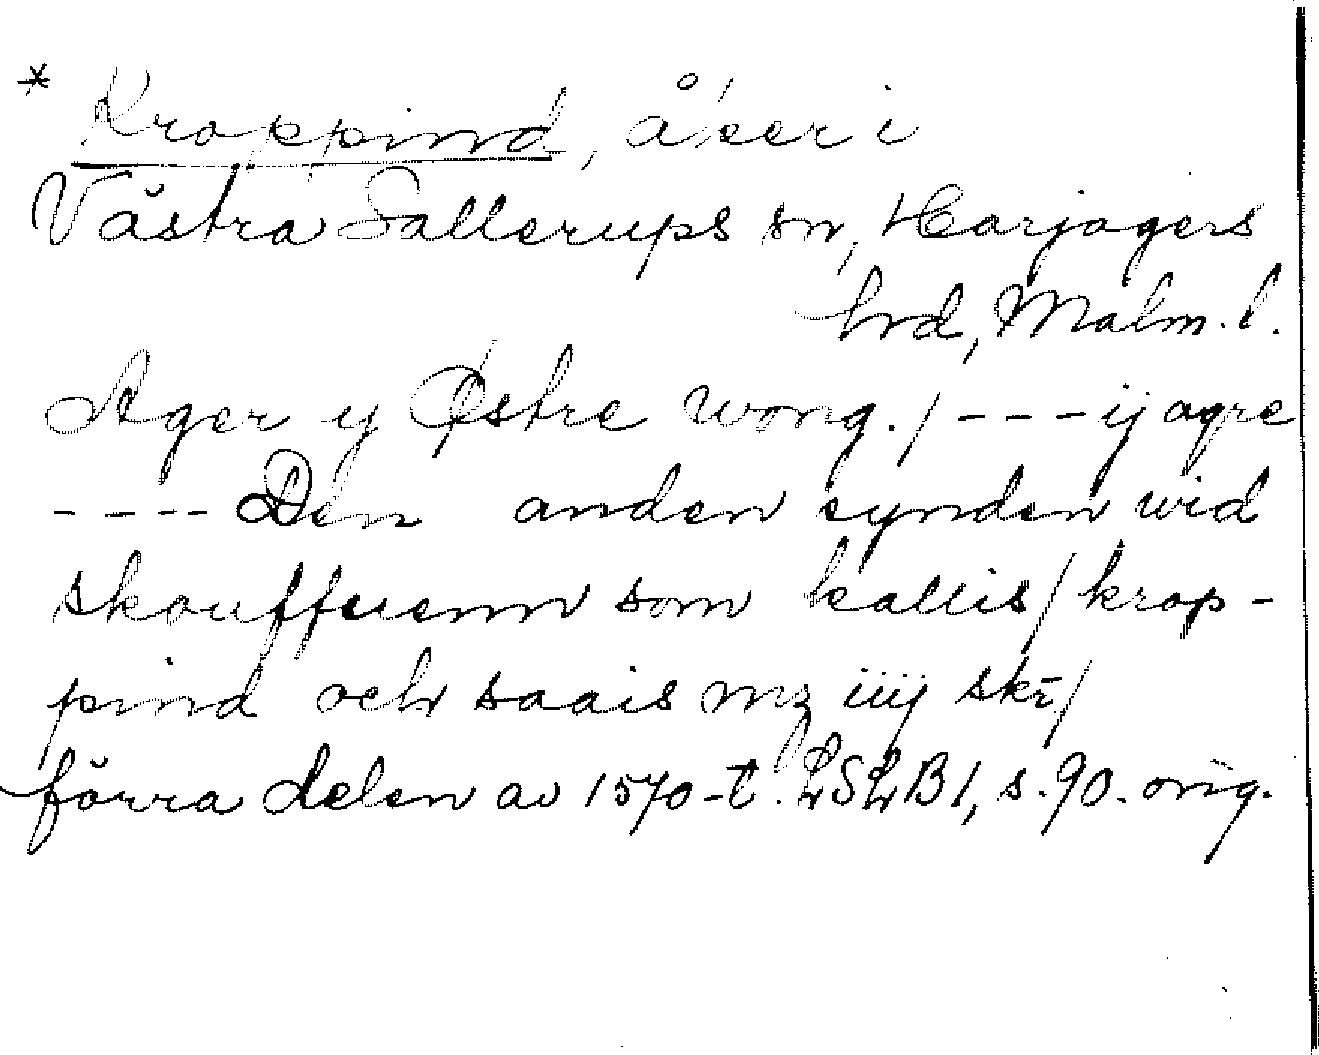 * Kroppind, åker i
Västra Sallerups sn, Harjagers
hrd, Malm. l.
Ager y Østre wong./ - - - ij agre
- - - - Den anden synden wid
skouffuenn som kallis/ krop-
pind och saais mz iiij skr/
förra delen av 1570-t. LSLB 1, s. 90. orig.